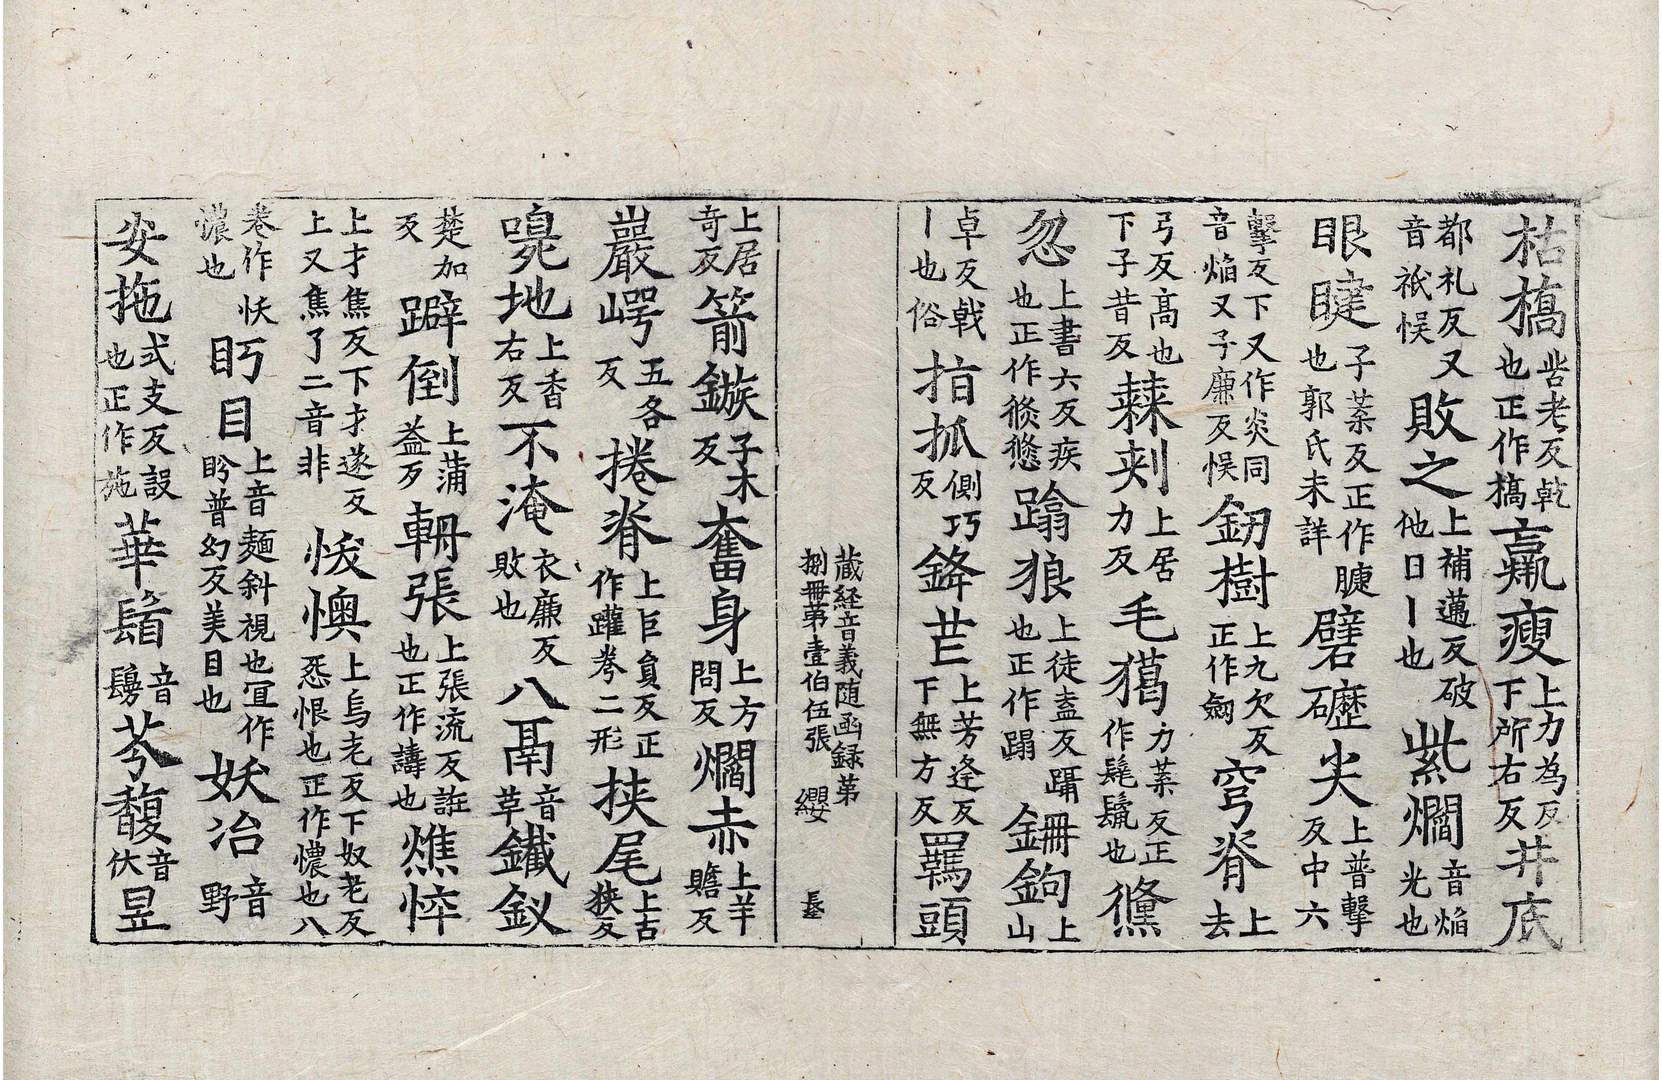 枯槗苦老反乹也正作槁羸瘦上力為反下所右反井底
都礼反又音祇悮敗之上補邁反破也他日丨也紫爓音焰光也
眼睫子葉反正作䀹也郭氏未詳礔礰尖上普擊反中六
擊反下又作炎同音焰又子廉反悮釰樹上九欠反正作劔穹脊上去
弓反高也下子昔反棘刾上居力反毛獦力葉反正作髦鬣也儵
忽上書六反疾也正作倏㥰蹹狼上徒盍反蹑也正作蹋鉫鉤上山
卓反戟丨也俗指抓側巧反鋒芒上芳逢反下無方反羇頭
藏經音義随函録第捌冊第壹伯伍張 纓
上居竒反箭鏃子木反奮身上方問反爓赤上羊贍反
巖崿五各反捲脊上巨負反正作躣桊二形挟尾上古狹反
嗅地上香右反不淹衣廉反敗也八鬲音革鐵釵
楚加反躃倒上蒲益反輈張上張流反誑也正作譸也燋悴
上才焦反下才遂反上又焦了二音非㤇懊上烏老反下奴老反㤅恨也正作憹也八
卷作㤇憹也眄目上音麺斜視也冝作盻普幻反美目也妖冶音野
安拖式支反設也正作施華鬘音芬馥音伏昱